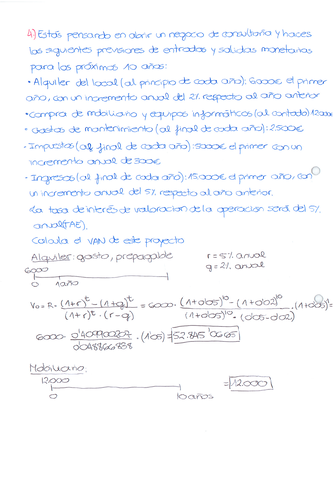 4) Estás pensando en abrir un negocio de consultoría y haces
las siguientes previsiones de entradas y salidas monetarias
para los próximos 10 años:
• Alquiler del local (al principio de cada año): 6000€ el primer
año, con un incremento anual del 2% respecto al año anterior
• Compra de mobiliario y equipos informáticos (al contado) 12000
- Gastos de mantenimiento (al final de cada año): 2500€
- Impuestos (al final de cada año): 5000€ el primer con un
incremento anual de 300€
- Ingresos (al final de cada año): 15.000€ el primer año, con
un incremento anual del 5% respecto al año anterior.
La tasa de interés de valoración de la operación será del 5%
anual (TAE),
Calcula el VAN de este proyecto
Alquiler: gasto, prepagable r = 5% anual
6000 q = 2% anual
0 1año
V₀ = R · (1+r)^t − (1+q)^t / (1+r)^t · (r−q) = 6000 · (1+0'05)^10 − (1+0'02)^10 / (1+0'05)^10 · (0'05−0'02) · (1+0'05)
6000 · 0'409900207 / 0'048866838 · (1'05) = 52.845'0665
Mobiliario:
12.000 = 12.000
0 10 años